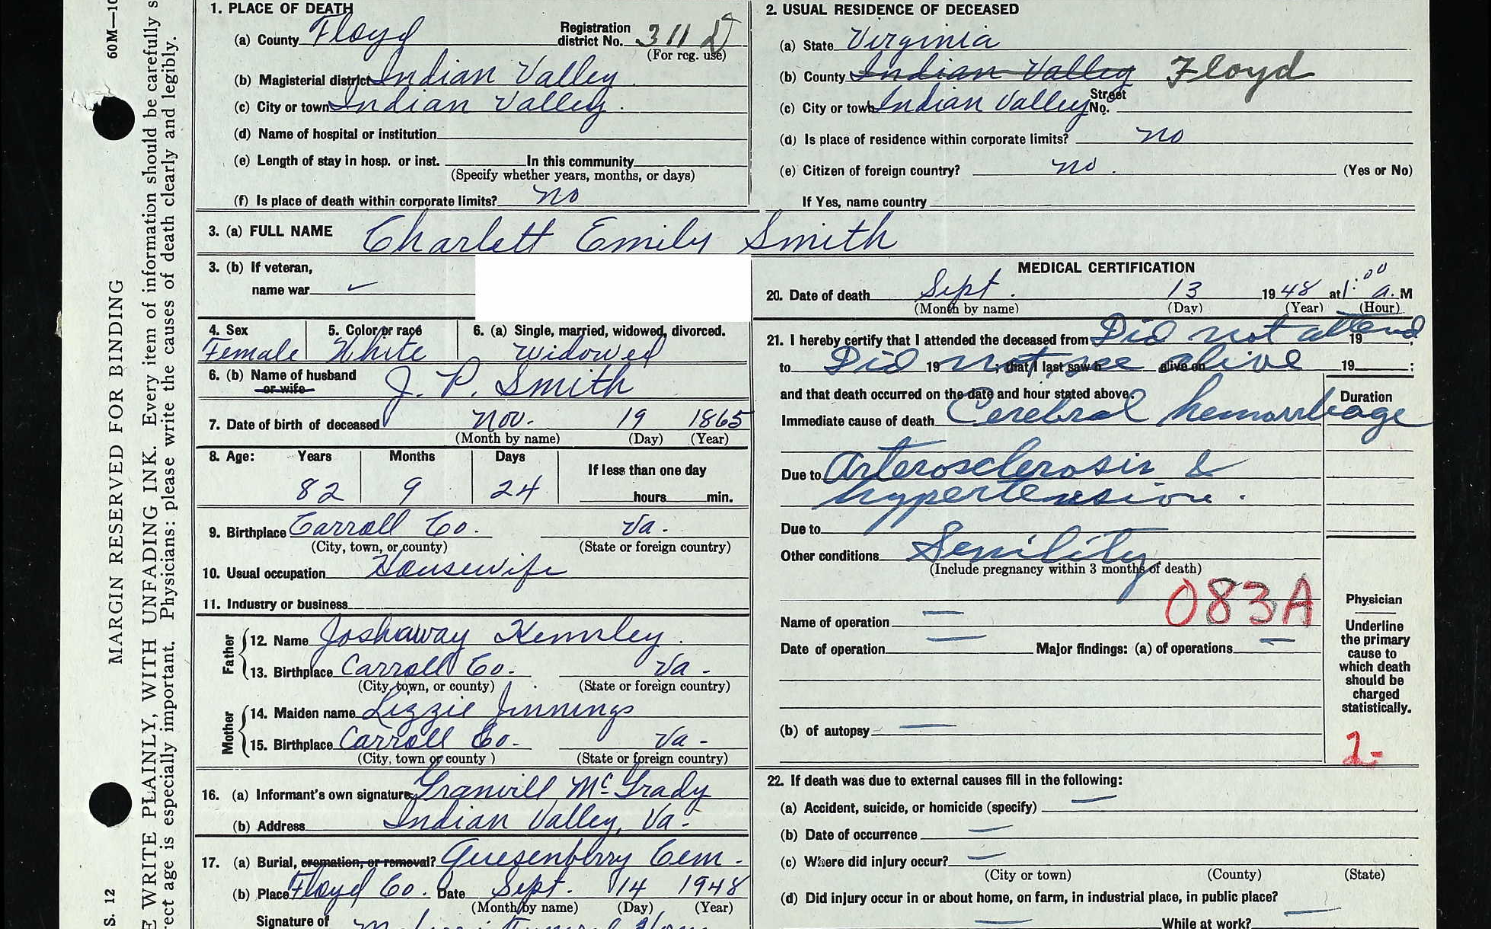 1. PLACE OF DEATH
(a) County Floyd Registration district No. 311 D
(For reg. use)
(b) Magisterial district Indian Valley
(c) City or town Indian Valley.
(d) Name of hospital or institution
(e) Length of stay in hosp. or inst. In this community
(Specify whether years, months, or days)
(f) Is place of death within corporate limits? no
2. USUAL RESIDENCE OF DECEASED
(a) State Virginia
(b) County Indian Valley Floyd
(c) City or town Indian Valley Street No.
(d) Is place of residence within corporate limits? no
(e) Citizen of foreign country? no. (Yes or No)
If Yes, name country
3. (a) FULL NAME Charlett Emily Smith
3. (b) If veteran,
name war
4. Sex 5. Color or race 6. (a) Single, married, widowed, divorced.
Female White Widowed
6. (b) Name of husband J. P. Smith
or wife
7. Date of birth of deceased Nov. 19 1865
(Month by name) (Day) (Year)
8. Age: Years Months Days If less than one day
82 9 24 hours min.
9. Birthplace Carroll Co. Va.
(City, town, or county) (State or foreign country)
10. Usual occupation Housewife
11. Industry or business
Father
12. Name Joshaway
13. Birthplace Carroll Co. Va -
(City, town, or county) (State or foreign country)
Mother
14. Maiden name Lizzie Jennings
15. Birthplace Carroll Co. Va -
(City, town or county ) (State or foreign country)
16. (a) Informant's own signature Granvill McGrady
(b) Address Indian Valley, Va-
17. (a) Burial, cremation, or removal? Quesenberry Cem -
(b) Place Floyd Co. Date Sept. 14 1948
(Month by name) (Day) (Year)
Signature of Funeral Home
MEDICAL CERTIFICATION
20. Date of death Sept. 13 1948 at 1:00 a. M
(Month by name) (Day) (Year) (Hour)
21. I hereby certify that I attended the deceased from Did not attend 19 ,
to Did 19 not see ; that I last saw h alive on alive 19 ;
and that death occurred on the date and hour stated above. Duration
Immediate cause of death Cerebral hemorrhage
Due to Arterosclerosis &
hypertension.
Due to
Other conditions Senility
(Include pregnancy within 3 months of death)
083A
Name of operation
Date of operation Major findings: (a) of operations
(b) of autopsy
Physician
Underline
the primary
cause to
which death
should be
charged
statistically.
2-
22. If death was due to external causes fill in the following:
(a) Accident, suicide, or homicide (specify)
(b) Date of occurrence
(c) Where did injury occur?
(City or town) (County) (State)
(d) Did injury occur in or about home, on farm, in industrial place, in public place?
While at work?
MARGIN RESERVED FOR BINDING
WRITE PLAINLY, WITH UNFADING INK. Every item of information should be carefully
age is especially important. Physicians: please write the causes of death clearly and legibly.
S. 12
60M—10